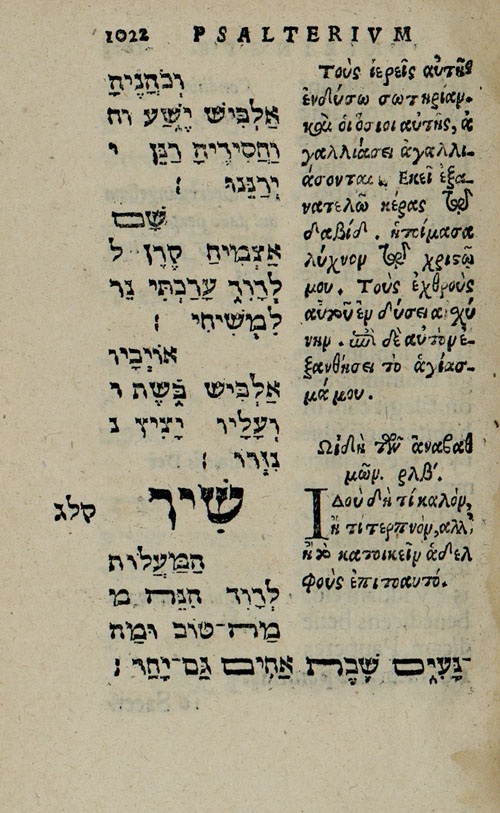 1022 PSALTERIVM
וְכֹהֲנֶיהָ
אַלְבִּישׁ יֶשַׁע וח
וַחֲסִידֶיהָ רַנֵּן י
יְרַנֵּנוּ ׃
שָׁם
אַצְמִיחַ קֶרֶן ל
לְדָוִד עָרַכְתִּי נֵר
לִמְשִׁיחִי ׃
אוֹיְבָיו
אַלְבִּישׁ בֹּשֶׁת ו
וְעָלָיו יָצִיץ נ
נִזְרוֹ ׃
שִׁיר קלג
הַמַּעֲלוֹת
לְדָוִד הִנֵּה מ
מַה־טּוֹב וּמַה
־נָּעִים שֶׁבֶת אַחִים גַּם־יָחַד ׃
Τοὺς ἱερεῖς αὐτῆς
ἐνδύσω σωτηρίαν.
καὶ οἱ ὅσιοι αὐτῆς, ἀ
γαλλιάσει ἀγαλλι-
άσονται. Ἐκεῖ ἐξα-
νατελῶ κέρας τῷ
δαβίδ. ἡτοίμασα
λύχνον τῷ χριστῷ
μου. Τοὺς ἐχθροὺς
αὐτοῦ ἐνδύσω αἰσχύ
νην. ἐπὶ δὲ αὐτὸν ἐ-
ξανθήσει τὸ ἁγίασ-
μά μου.
Ὠιδὴ τῶν ἀναβαθ
μῶν. ρλβʹ.
ΙΔοὺ δὴ τί καλὸν,
ἢ τί τερπνὸν, ἀλλ'
ἢ τὸ κατοικεῖν ἀδελ
φοὺς ἐπιτοαυτό.